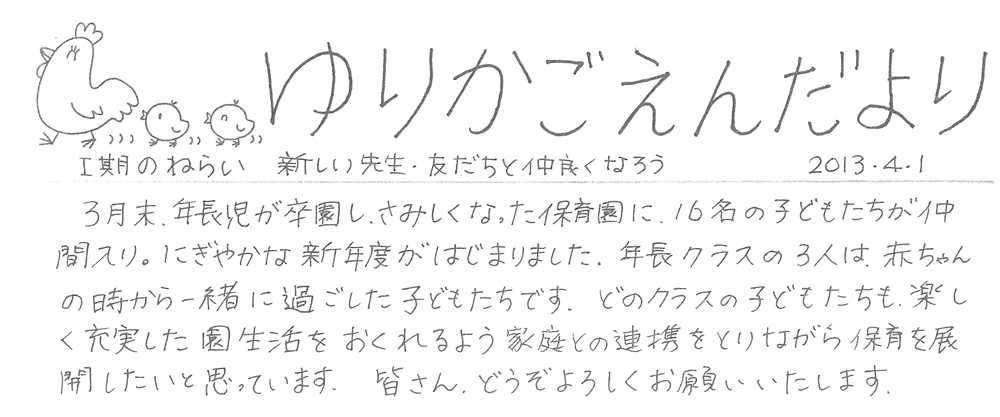 ゆりかごえんだより
I期のねらい 新しい先生・友だちと仲良くなろう 2013・4・1
3月末、年長児が卒園し、さみしくなった保育園に、16名の子どもたちが仲
間入り。にぎやかな新年度がはじまりました。年長クラスの3人は、赤ちゃん
の時から一緒に過ごした子どもたちです。どのクラスの子どもたちも、楽し
く充実した園生活をおくれるよう家庭との連携をとりながら保育を展
開したいと思っています。 皆さん、どうぞよろしくお願いいたします。